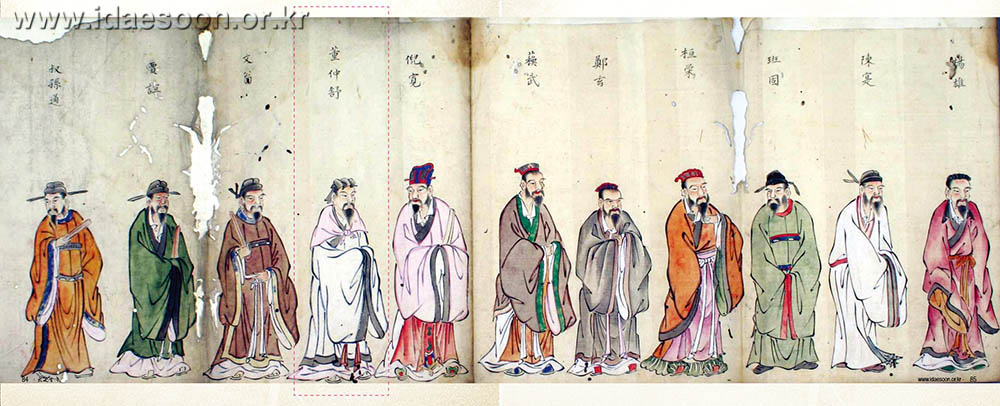 www.idaesoon.or.kr
揚雄
陳寔
班固
桓榮
鄭玄
蘓武
倪寬
董仲舒
文翁
賈誼
叔孫通
84
www.idaesoon.or.kr - 85